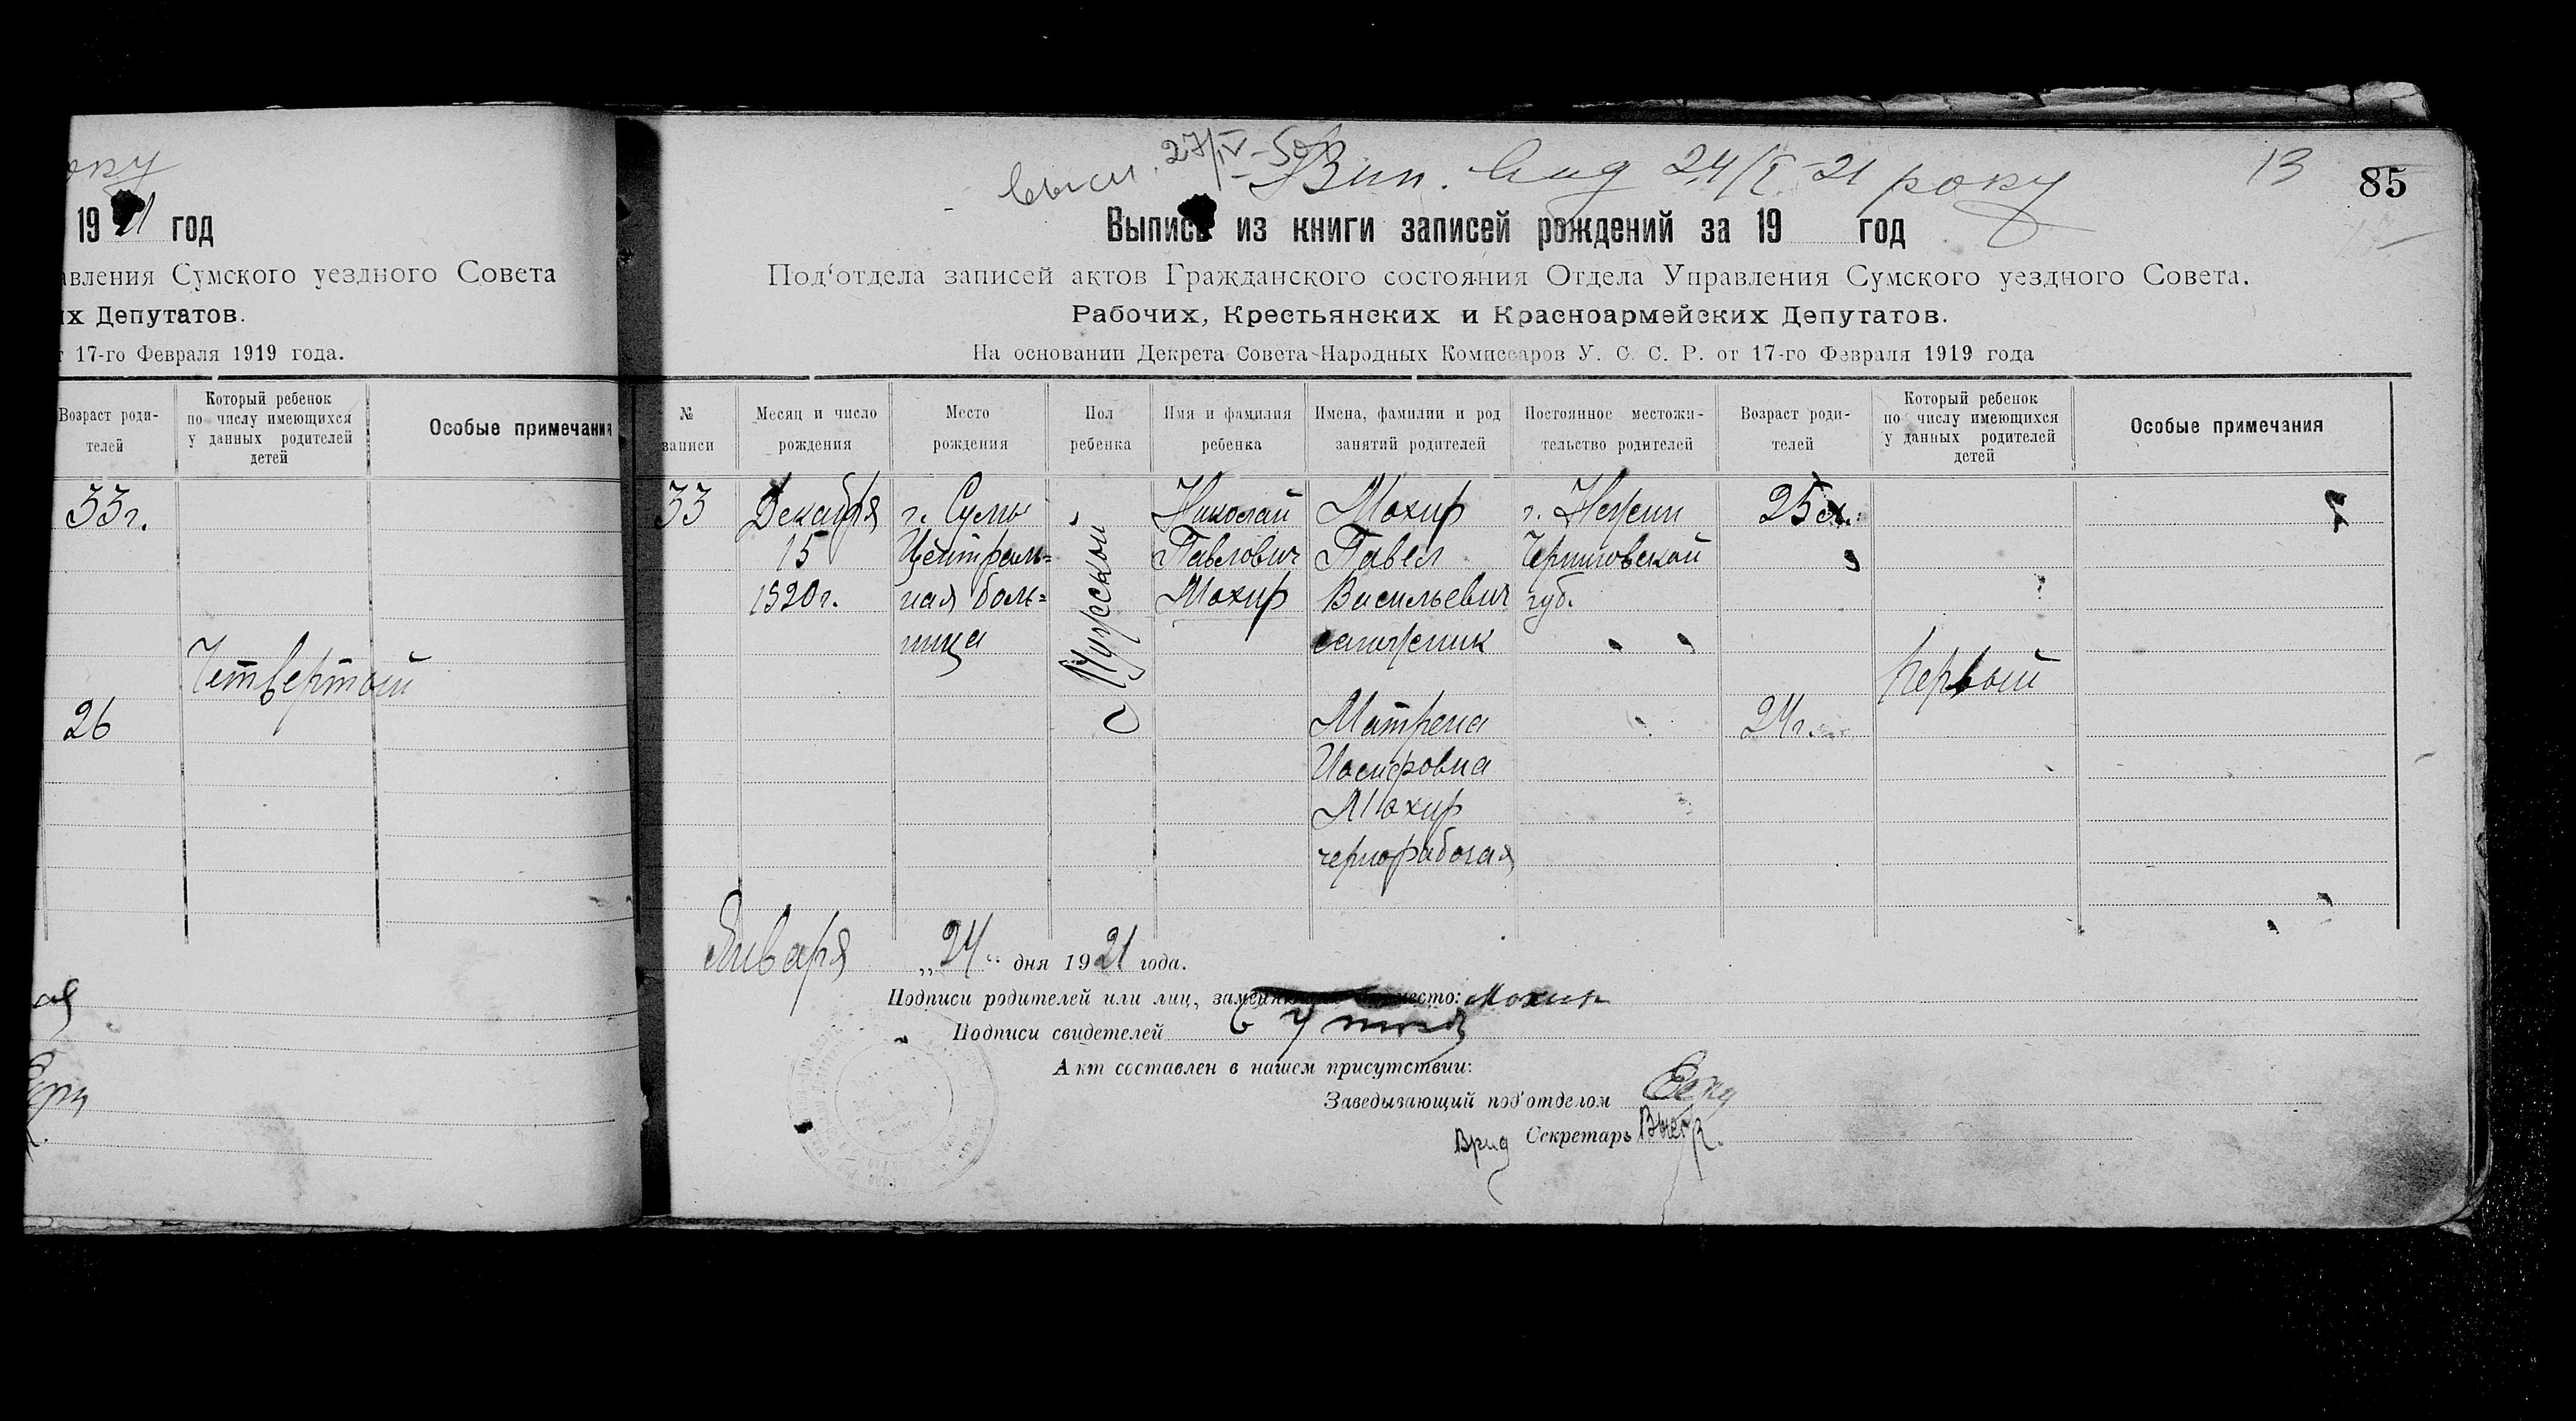 оку
19 21 год
авления Сумского уездного Совета
их Депутатов.
т 17-го Февраля 1919 года.
Возраст роди-
телей
Который ребенок
по числу имеющихся
у данных родителей
детей
Особые примечания
33г.
Четвертый
26
27/IV-50
Вип. вид 24/I-21 року
13
85
Выпись из книги записей рождений за 19 год
Под'отдела записей актов Гражданского состояния Отдела Управления Сумского уездного Совета.
Рабочих, Крестьянских и Красноармейских Депутатов.
На основании Декрета Совета Народных Комиссаров У. С. С. Р. от 17-го Февраля 1919 года
№
записи
Месяц и число
рождения
Место
рождения
Пол
ребенка
Имя и фамилия
ребенка
Имена, фамилии и род
занятий родителей
Постоянное местожи-
тельство родителей
Возраст роди-
телей
Который ребенок
по числу имеющихся
у данных родителей
детей
Особые примечания
33
Декабря
15
1920г.
г. Сумы
Централь=
ная боль=
ница
Мужской
Николай
Павлович
Мохир
Мохир
Павел
Васильевич
сапожник
Матрена
Иосифовна
Мохир
чернорабочая
г. Нежин
Черниговской
губ.
25 л.
24г.
Первый
Января "24" дня 1921 года.
Подписи родителей или лиц, заменяющих их место: Мохир
Подписи свидетелей
Акт составлен в нашем присутствии:
Заведывающий под'отделом
Врид Секретарь